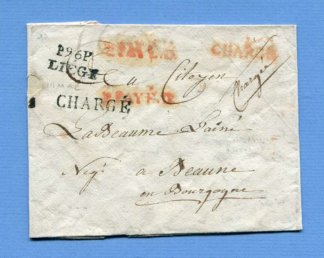 P.96.P.
LIEGE
CHARGÉ
CHARGÉ
au Citoyen
LaBeaume l'ainé
Négt. a Beaune
en Bourgogne